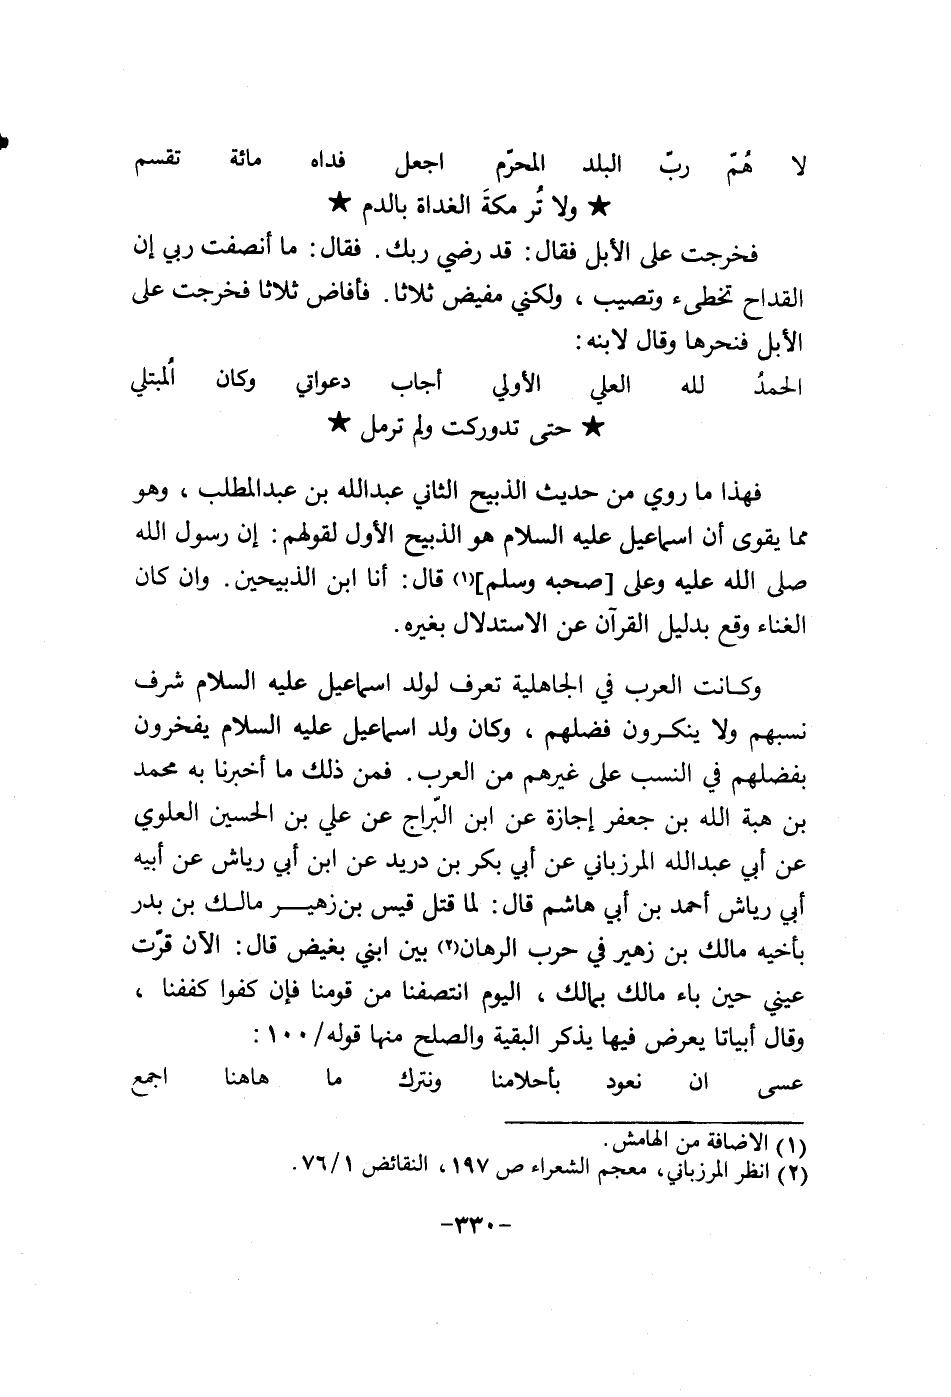 لا هُمّ ربّ البلد المحرّم اجعل فداه مائة تقسم
★ ولا تُر مكةَ الغداة بالدم ★
فخرجت على الأبل فقال: قد رضي ربك. فقال: ما أنصفت ربي إن
القداح تخطىء وتصيب ، ولكني مفيض ثلاثا. فأفاض ثلاثا فخرجت على
الأبل فنحرها وقال لابنه:
الحمدُ لله العلي الأولي أجاب دعواتي وكان اُلمبتلي
★ حتى تدوركت ولم ترمل ★
فهذا ما روي من حديث الذبيح الثاني عبدالله بن عبدالمطلب ، وهو
مما يقوى أن اسماعيل عليه السلام هو الذبيح الأول لقولهم: إن رسول الله
صلى الله عليه وعلى [صحبه وسلم](١) قال: أنا ابن الذبيحين. وان كان
الغناء وقع بدليل القرآن عن الاستدلال بغيره.
وكانت العرب في الجاهلية تعرف لولد اسماعيل عليه السلام شرف
نسبهم ولا ينكرون فضلهم ، وكان ولد اسماعيل عليه السلام يفخرون
بفضلهم في النسب على غيرهم من العرب. فمن ذلك ما أخبرنا به محمد
بن هبة الله بن جعفر إجازة عن ابن البّراج عن علي بن الحسين العلوي
عن أبي عبدالله المرزباني عن أبي بكر بن دريد عن ابن أبي رياش عن أبيه
أبي رياش أحمد بن أبي هاشم قال: لما قتل قيس بن زهير مالك بن بدر
بأخيه مالك بن زهير في حرب الرهان(٢) بين ابني بغيض قال: الآن قرّت
عيني حين باء مالك بمالك ، اليوم انتصفنا من قومنا فإن كفوا كففنا ،
وقال أبياتا يعرض فيها يذكر البقية والصلح منها قوله/١٠٠:
عسى ان نعود بأحلامنا ونترك ما هاهنا اجمع
(١) الاضافة من الهامش.
(٢) انظر المرزباني، معجم الشعراء ص ١٩٧، النقائض ٧٦/١.
-٣٣٠-